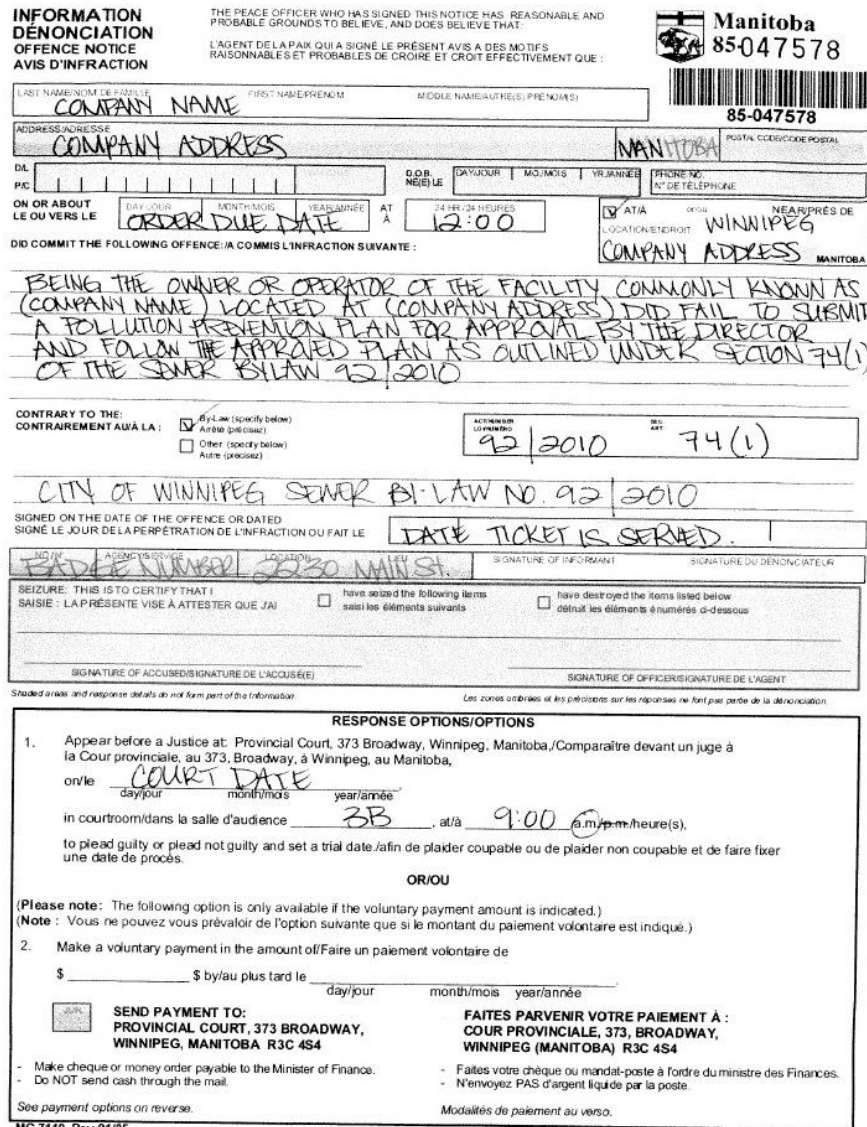 INFORMATION
DÉNONCIATION
OFFENCE NOTICE
AVIS D'INFRACTION
THE PEACE OFFICER WHO HAS SIGNED THIS NOTICE HAS REASONABLE AND
PROBABLE GROUNDS TO BELIEVE, AND DOES BELIEVE THAT:
L'AGENT DE LA PAIX QUI A SIGNÉ LE PRÉSENT AVIS A DES MOTIFS
RAISONNABLES ET PROBABLES DE CROIRE ET CROIT EFFECTIVEMENT QUE :
Manitoba
85-047578
85-047578
LAST NAME/NOM DE FAMILLE FIRST NAME/PRÉNOM MIDDLE NAME/AUTRE(S) PRÉNOM(S)
COMPANY NAME
ADDRESS/ADRESSE POSTAL CODE/CODE POSTAL
COMPANY ADDRESS MANITOBA
D/L
P/C
D.O.B.
NÉ(E) LE
DAY/JOUR MO./MOIS YR./ANNÉE
PHONE NO.
N° DE TÉLÉPHONE
ON OR ABOUT
LE OU VERS LE
DAY/JOUR MONTH/MOIS YEAR/ANNÉE
ORDER DUE DATE
AT
À
24 HR/24 HEURES
12:00
AT/À OR/OU NEAR/PRÈS DE
LOCATION/ENDROIT WINNIPEG
COMPANY ADDRESS MANITOBA
DID COMMIT THE FOLLOWING OFFENCE:/A COMMIS L'INFRACTION SUIVANTE :
BEING THE OWNER OR OPERATOR OF THE FACILITY COMMONLY KNOWN AS
(COMPANY NAME) LOCATED AT (COMPANY ADDRESS) DID FAIL TO SUBMIT
A POLLUTION PREVENTION PLAN FOR APPROVAL BY THE DIRECTOR
AND FOLLOW THE APPROVED PLAN AS OUTLINED UNDER SECTION 74(1)
OF THE SEWER BYLAW 92/2010
CONTRARY TO THE:
CONTRAIREMENT AU/À LA :
By-Law (specify below)
Arrêté (précisez)
Other (specify below)
Autre (précisez)
ACT/NUMBER
LOI/NUMÉRO
92/2010
SEC.
ART.
74(1)
CITY OF WINNIPEG SEWER BY-LAW NO. 92/2010
SIGNED ON THE DATE OF THE OFFENCE OR DATED
SIGNÉ LE JOUR DE LA PERPÉTRATION DE L'INFRACTION OU FAIT LE
DATE TICKET IS SERVED.
NO./N° AGENCY/SERVICE LOCATION LIEU SIGNATURE OF INFORMANT SIGNATURE DU DÉNONCIATEUR
BADGE NUMBER 2230 MAIN St.
SEIZURE: THIS IS TO CERTIFY THAT I
SAISIE : LA PRÉSENTE VISE À ATTESTER QUE J'AI
have seized the following items
saisi les éléments suivants
have destroyed the items listed below
détruit les éléments énumérés ci-dessous
SIGNATURE OF ACCUSED/SIGNATURE DE L'ACCUSÉ(E)
SIGNATURE OF OFFICER/SIGNATURE DE L'AGENT
Shaded areas and response details do not form part of the Information.
Les zones ombrées et les précisions sur les réponses ne font pas partie de la dénonciation.
RESPONSE OPTIONS/OPTIONS
1. Appear before a Justice at: Provincial Court, 373 Broadway, Winnipeg, Manitoba,/Comparaître devant un juge à
la Cour provinciale, au 373, Broadway, à Winnipeg, au Manitoba,
on/le COURT DATE
day/jour month/mois year/année
in courtroom/dans la salle d'audience 3B , at/à 9:00 a.m./p.m./heure(s),
to plead guilty or plead not guilty and set a trial date./afin de plaider coupable ou de plaider non coupable et de faire fixer
une date de procès.
OR/OU
(Please note: The following option is only available if the voluntary payment amount is indicated.)
(Note : Vous ne pouvez vous prévaloir de l'option suivante que si le montant du paiement volontaire est indiqué.)
2. Make a voluntary payment in the amount of/Faire un paiement volontaire de
$ $ by/au plus tard le
day/jour month/mois year/année
JUR.
SEND PAYMENT TO:
PROVINCIAL COURT, 373 BROADWAY,
WINNIPEG, MANITOBA R3C 4S4
- Make cheque or money order payable to the Minister of Finance.
- Do NOT send cash through the mail.
See payment options on reverse.
FAITES PARVENIR VOTRE PAIEMENT À :
COUR PROVINCIALE, 373, BROADWAY,
WINNIPEG (MANITOBA) R3C 4S4
- Faites votre chèque ou mandat-poste à l'ordre du ministre des Finances.
- N'envoyez PAS d'argent liquide par la poste.
Modalités de paiement au verso.